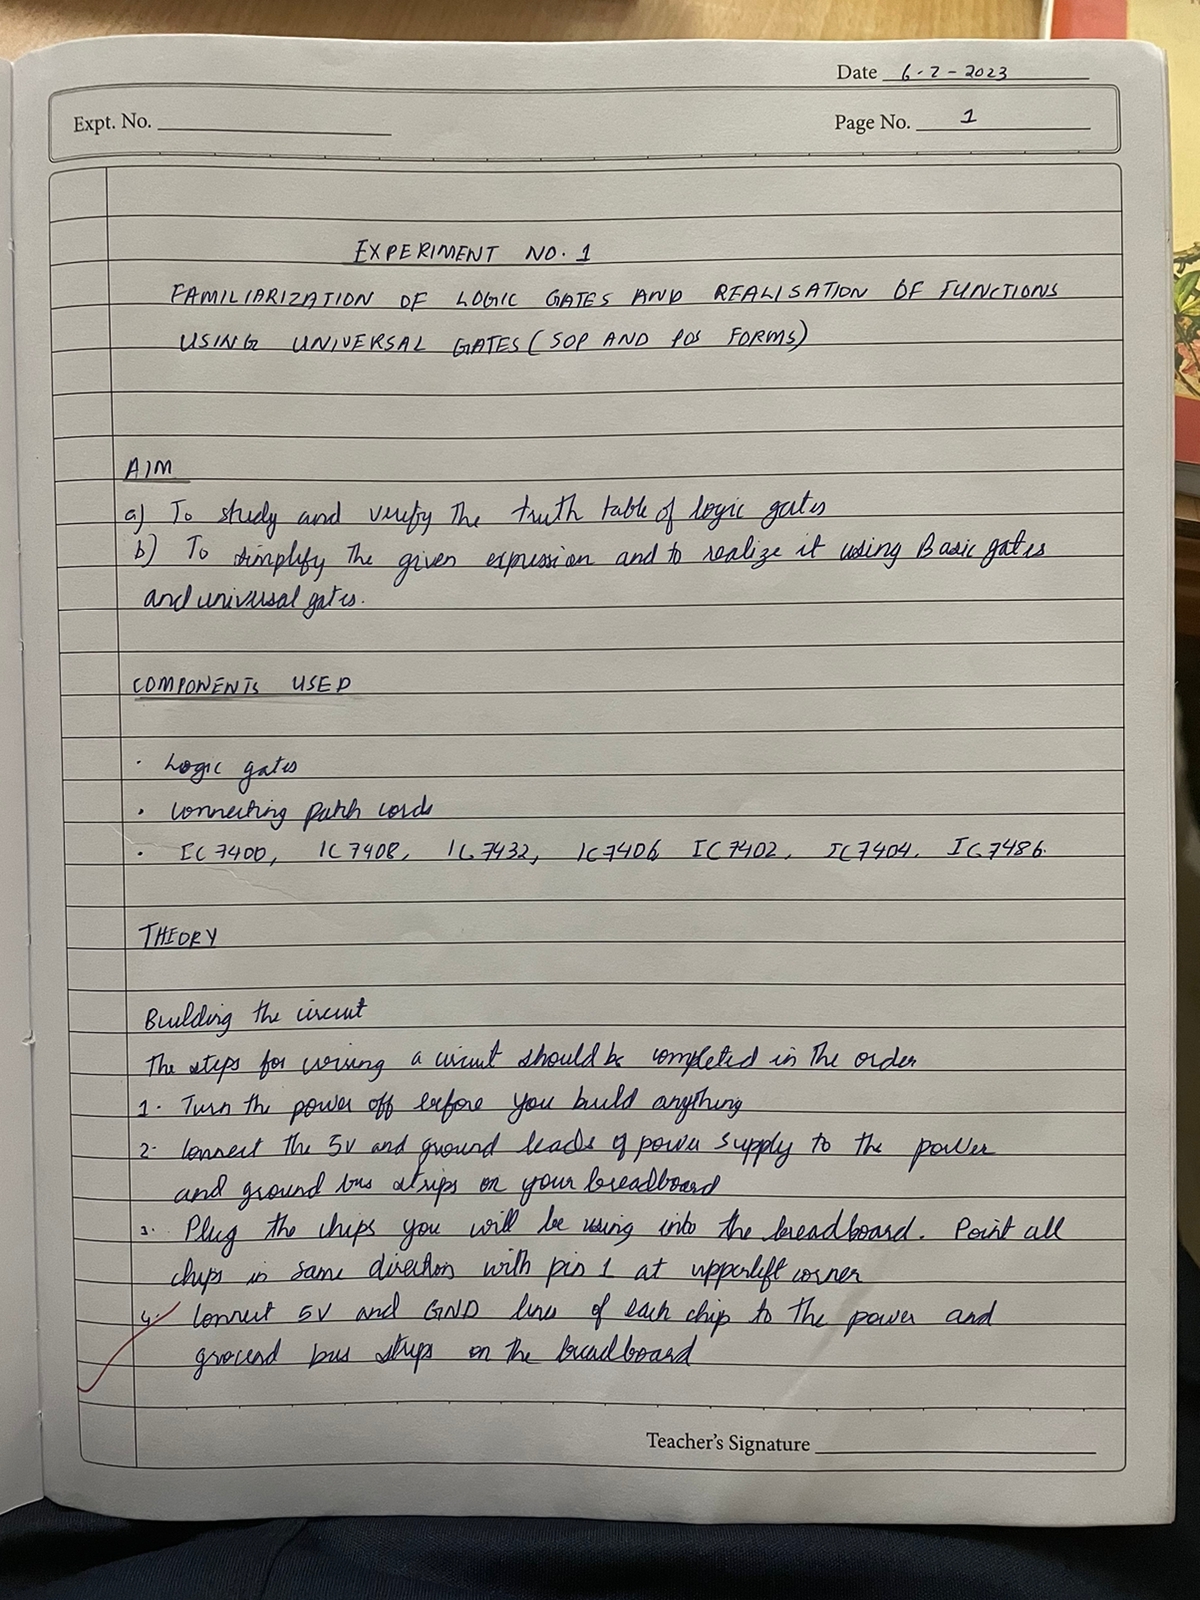 Date 6-2-2023
Expt. No.
Page No. 1
EXPERIMENT NO. 1
FAMILIARIZATION OF LOGIC GATES AND REALISATION OF FUNCTIONS
USING UNIVERSAL GATES (SOP AND POS FORMS)
AIM
a) To study and verify the truth table of logic gates
b) To simplify the given expression and to realize it using Basic gates
and universal gates.
COMPONENTS USED
· Logic gates
· connecting patch cords
· IC 7400, IC 7408, IC 7432, IC 7406 IC 7402, IC 7404, IC 7486.
THEORY
Building the circuit
The steps for wiring a circuit should be completed in the order
1. Turn the power off before you build anything
2. Connect the 5V and ground leads of power supply to the power
and ground bus strips on your breadboard
3. Plug the chips you will be using into the breadboard. Point all
chips in same direction with pin 1 at upperleft corner
4. Connect 5V and GND lines of each chip to the power and
ground bus strips on the breadboard
Teacher's Signature